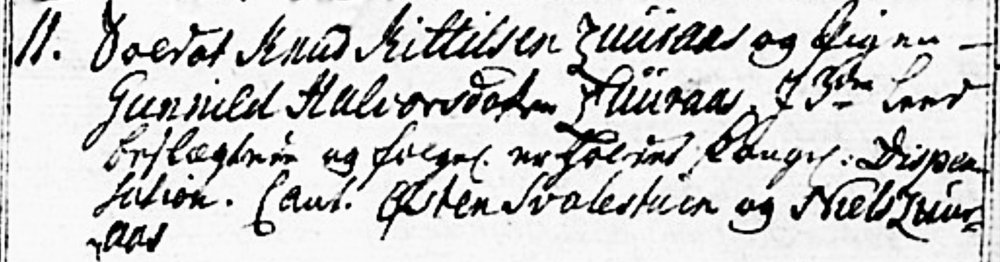 11. Soldat Knud Kittilsen Juuraas og Pigen
Gunnild Halvorsdatter Juuraas, I 3die Leed
beslægtede og følgel. Kongel. Dispen-
sation. Caut. Østen Svalestuen og Niels Juur-
aas